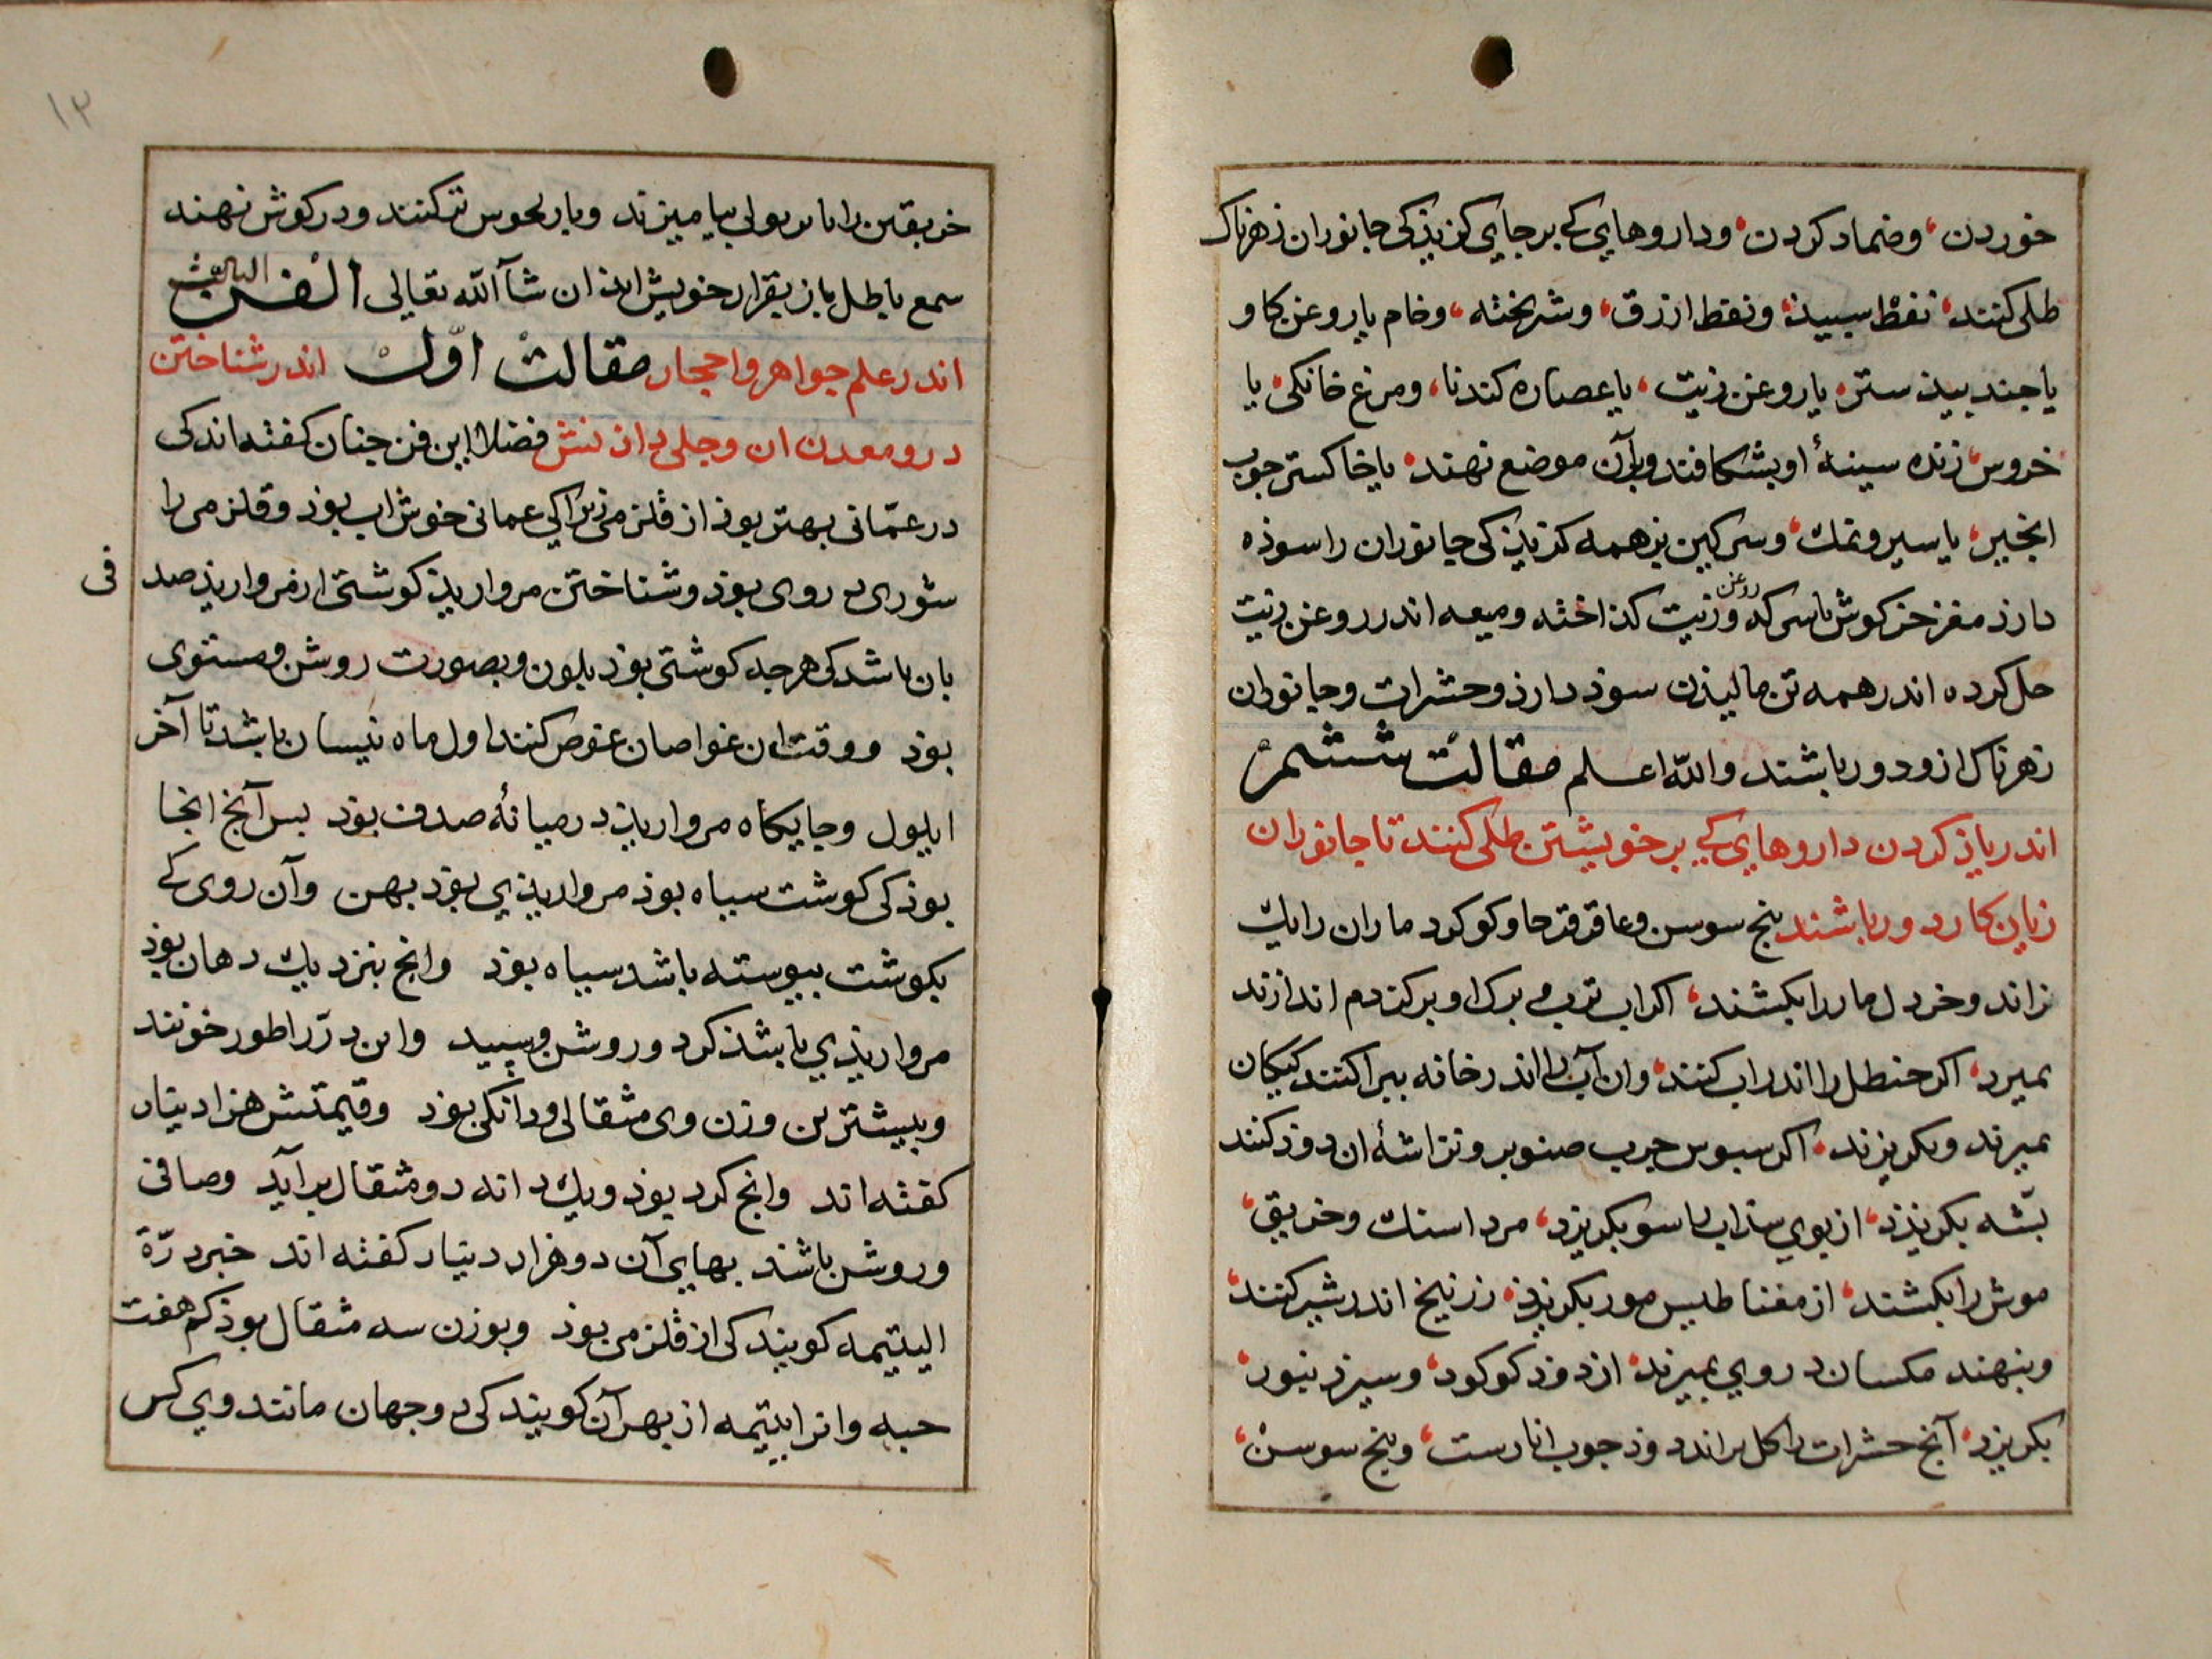 خوردن، وضماد کردن، وداروهایی کے برجایی کزیذکی جانوران زهرناک
طلی کنند، نفط سبیذ، ونفط ازرق، وخام یاروغن کاو
یا جند بیذستر، یاروغن زیت، یاعصاره کندنا، ومرغ خانکی، یا
خروس، زنده سینهٔ او بشکافند وبرآن موضع نهند، یاخاکستر جوب
انجیر، یا سیر ونمک، وسرکین بز همه کزیذکی جانوران را سوذه
دارذ مغز خرکوش باسرکه وروغن زیت کذاخته ومیعه اندر روغن زیت
حل کرده اندر همه تن مالیذن سوذ دارذ وحشرات وجانوران
زهرناک ازو دور باشند والله اعلم مقالت ششم
اندر یاذ کردن داروهایی کے بر خویشتن طلی کنند تا جانوران
زیان کار دور باشند بنج سوسن وعاقرقرحا وکوکرد ماران را بک
زاند وخردل مار را بکشند، اکر اب ترب می برک او بر کزدم اندازند
بمیرد، اکر حنظل را اندر اب کنند، وان آب را اندر خانه ببراکنند کیکان
بمیرند وبکریزند، اکر سبوس جرب صنوبر وتراشهٔ ان دوذ کنند
بشّه بکریزذ، از بوی سذاب راسو بکریزد، مرداسنک وخربق،
موش را بکشند، از مغناطیس مور بکریزذ، زرنیخ اندر شیر کنند،
وبنهند مکسان در وی بمیرند، از دوذ کوکرد، وسیر زنبور،
بکریزد، آنج حشرات را کل براند دوذ جوب انارست، وبنج سوسن،
۱۲
خربقین را با بیامیزند وبار تر کنند ودر کوش نهند
سمع باطل باز بقرار خویش ایذ ان شآ الله تعالی الفن الثالث
اندر علم جواهر واحجار مقالت اوّل اندر شناختن
درو معدن ان وجلی دانش فضلاء این فن جنان کفته اندکی
در عمّانی بهتر بوذ از قلزمی زیراکی عمانی خوش اب بوذ وقلزمی را
شوری در وی بوذ وشناختن مروارید کوشتی از مروارید صدفی
بان باشد کی هرجه کوشتی بوذ بلون وبصورت روشن ومستوی
بوذ ووقت ان غواصان غوص کنند اول ماه نیسان باشد تا آخر
ایلول وجایکاه مروارید در میانهٔ صدف بوذ بس آنج انجا
بوذ کی کوشت سیاه بوذ مرواریذی بوذ بهن وآن روی کے
بکوشت بیوسته باشد سیاه بوذ وانج بنزدیک دهان بوذ
مرواریذی باشذ کرد وروشن وسپید واین درّ را طور خونند
وبیشترین وزن وی مثقالی ودانکی بوذ وقیمتش هزار دینار
کفته اند وانج کرد بوذ ویک دانه دو مثقال برآید وصافی
وروشن باشذ بهایی آن دو هزار دینار کفته اند خبر درّة
الیتیمه کویند کی از قلزمی بوذ وبوزن سه مثقال بوذ کم هفت
حبه وانرا یتیمه از بهر آن کویند کی در جهان مانند وی کس